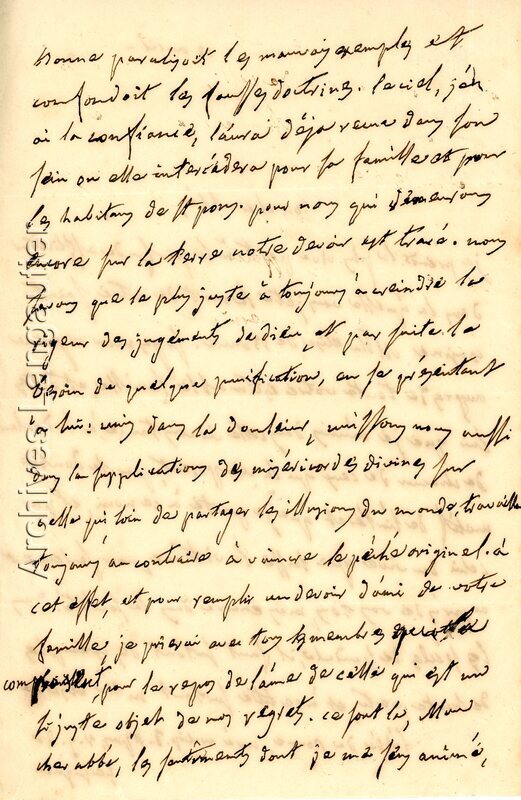 bonne paralisoit les mauvais exemples et
confondoit les fausses doctrines. le ciel, j'en
ai la confiance, l'aura déja recue dans son
sein ou elle intercédera pour sa famille et pour
les habitans de st pons. pour nous qui demeurons
encore sur la terre notre devoir est tracé. nous
savons que le plus juste à toujours à creindre la
rigeur des jugements de dieu, et par suite le
besoin de quelque purification, en se présentant
à lui: unis dans la douleur, unissons nous aussi
dans la supplications des miséricordes divines sur
celle qui, loin de partager les illusions du monde, travailla
toujours au contraire à vaincre le péché originel. à
cet effet, et pour remplir un devoir d'ami de votre
famille je prierai avec tous les membres qui la
composent, pour le repos de l'ame de celle qui est un
si juste objet de nos regrets. ce sont la, Mon
cher abbé, les sentiments dont je me sens animé,
Archives-Lengaufier